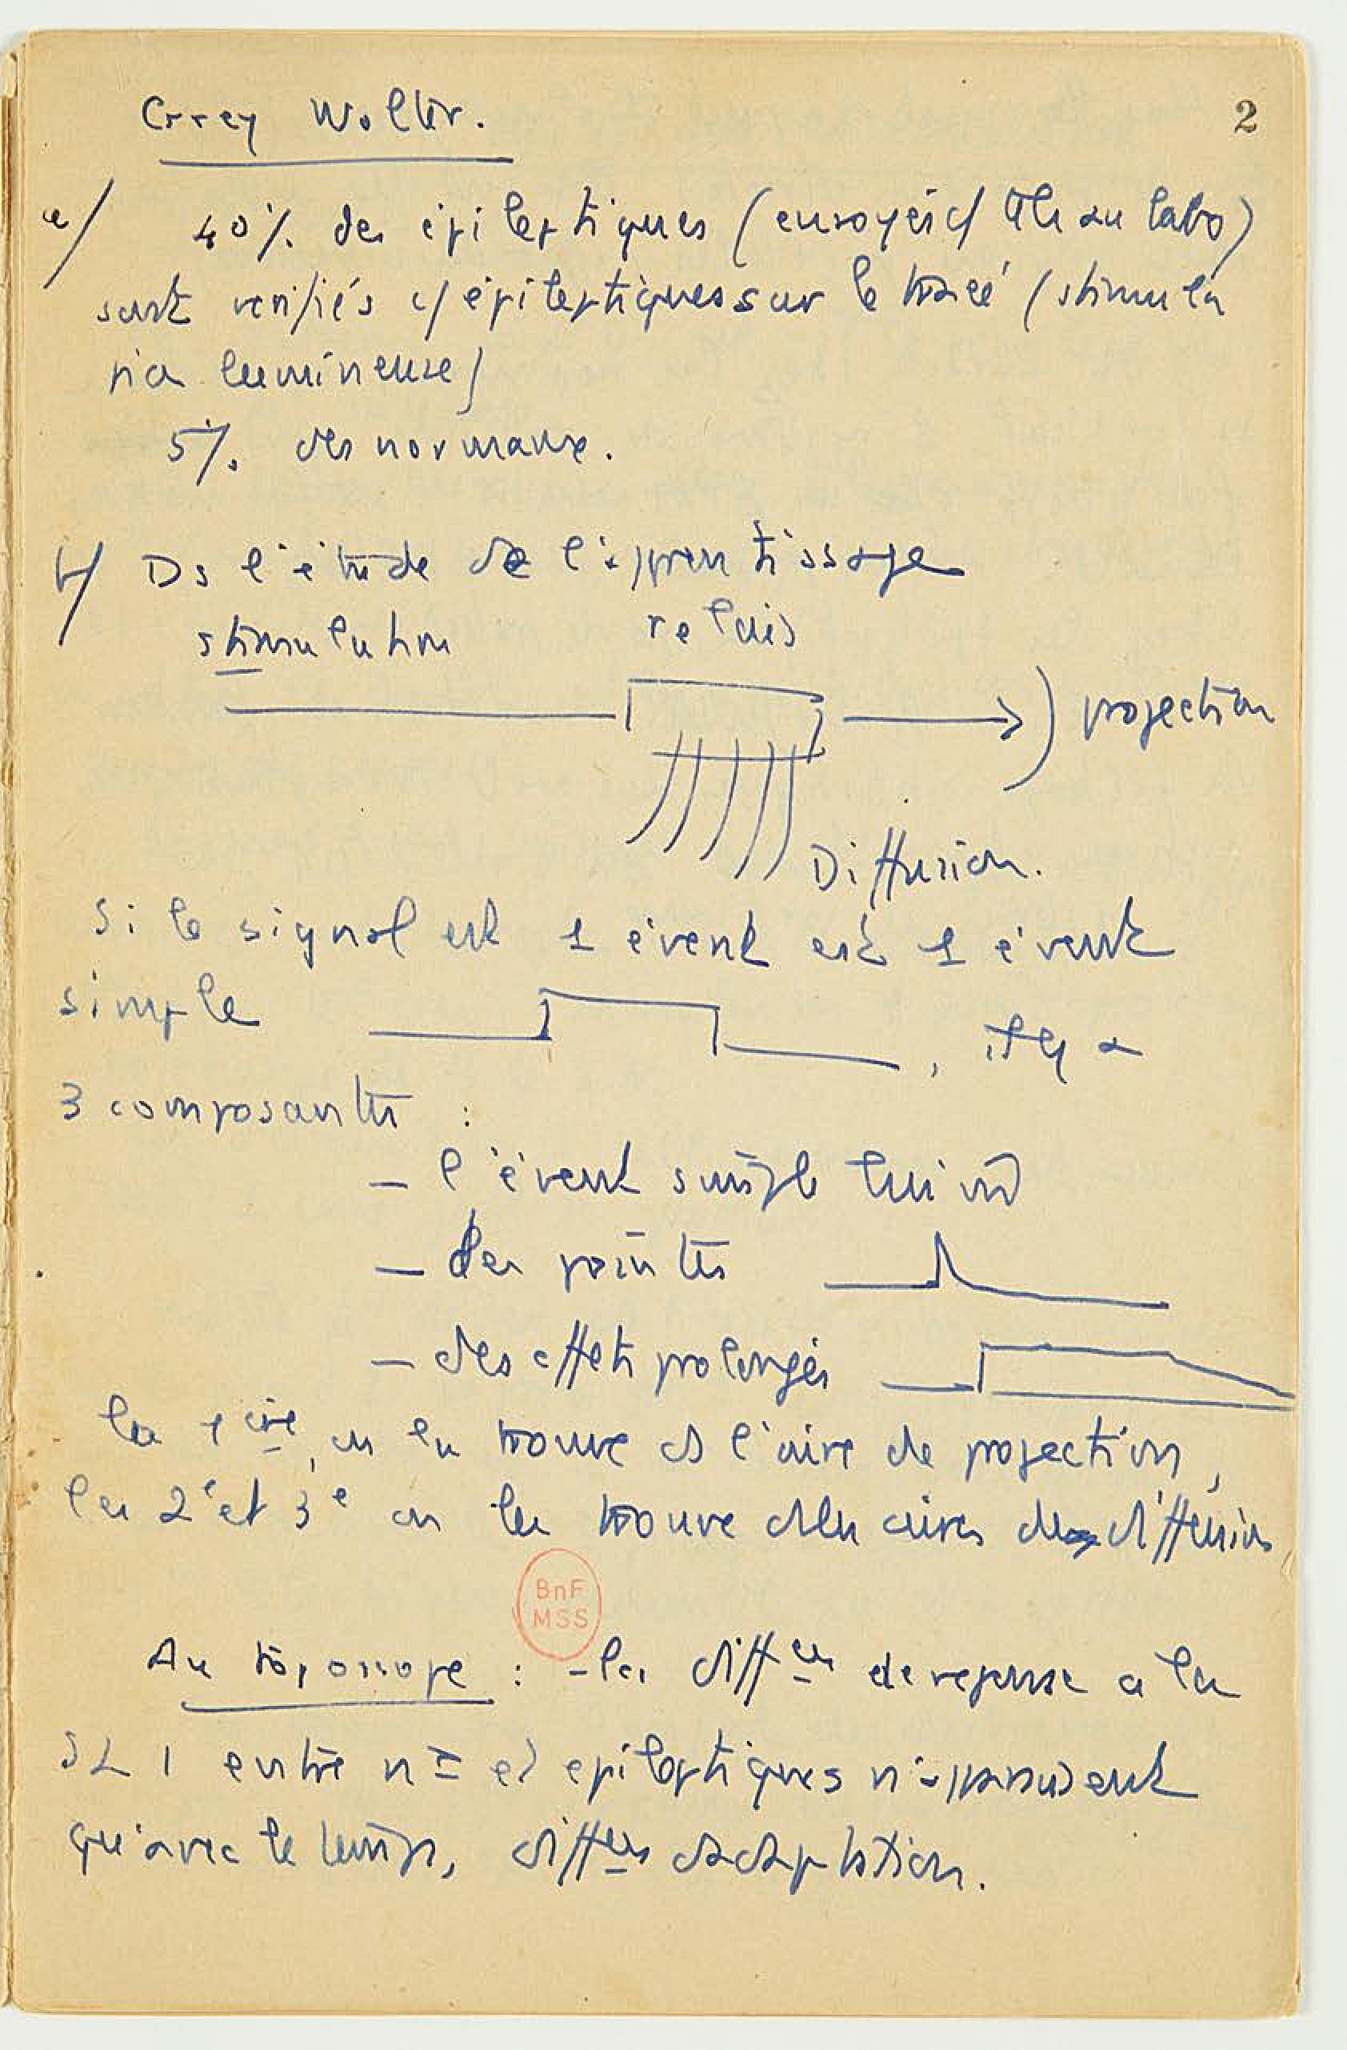 Grey Walter.
2
a/ 40%. des épileptiques (envoyés c/ tels au labo)
sont vérifiés c/ épileptiques sur le tracé (stimula
tion lumineuse)
5%. des normaux.
b/ Ds l'étude de l'apprentissage
stimulation relais
projection
Diffusion.
Si le signal est 1 évent est 1 évent
simple , il y a
3 composantes :
– l'évent simple lui m̂
– des pointes
– des effets prolongés
La 1ère, on la trouve ds l'aire de projection,
les 2e et 3e on les trouve ds les aires de diffusion
BnF
MSS
Au toposcope : – les diffces de réponse à la
SL entre nx et épileptiques n'apparaissent
qu'avec le temps, diffces d'adaptation.